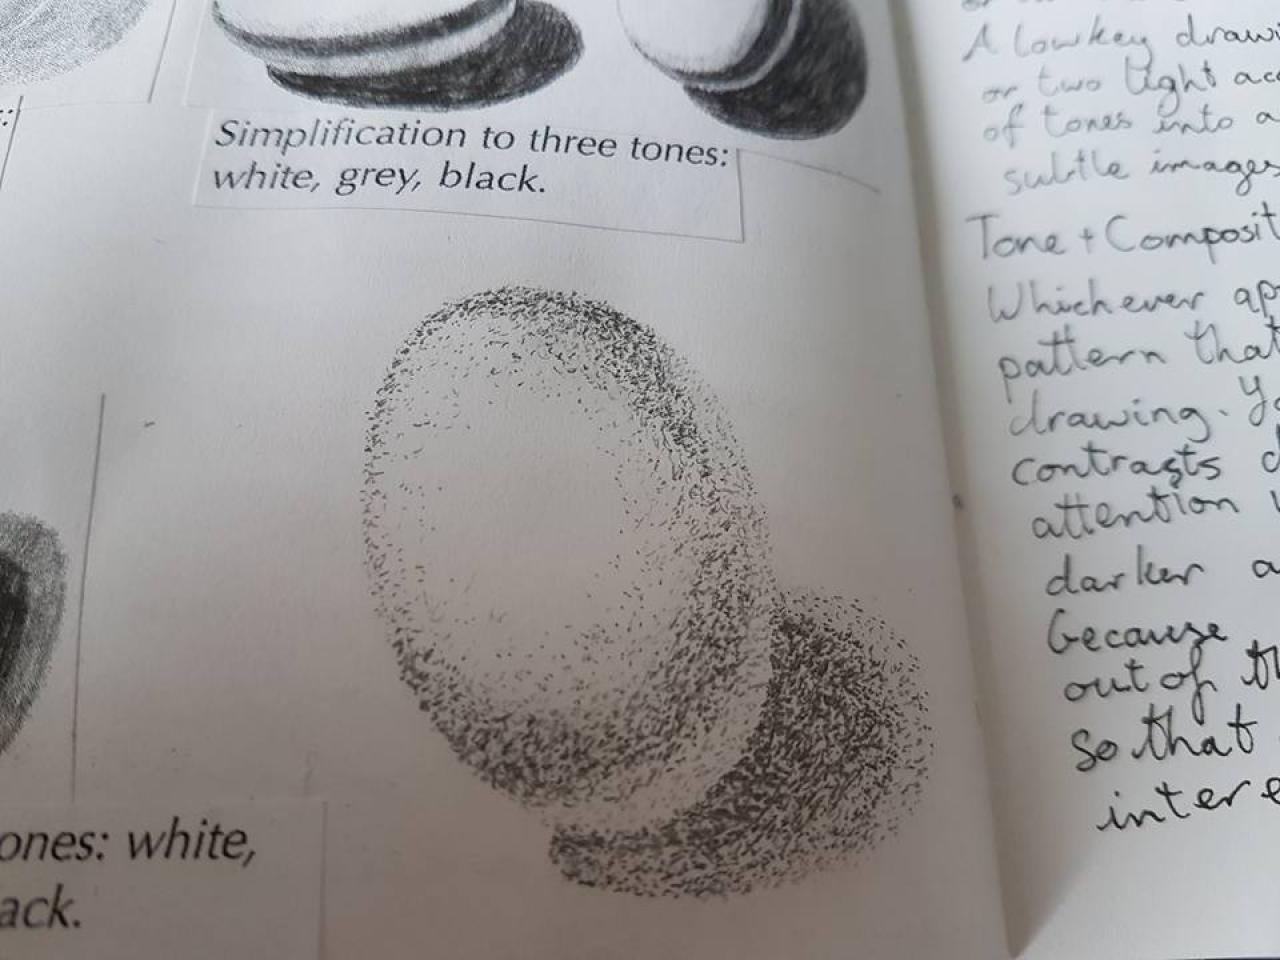 Simplification to three tones:
white, grey, black.
ones: white,
ack.
A lowkey drawi
or two light acc
of tones into a
subtle images
Tone + Composit
Whichever ap
pattern that
drawing. Yo
contrasts d
attention
darker a
because
out of th
so that
intere